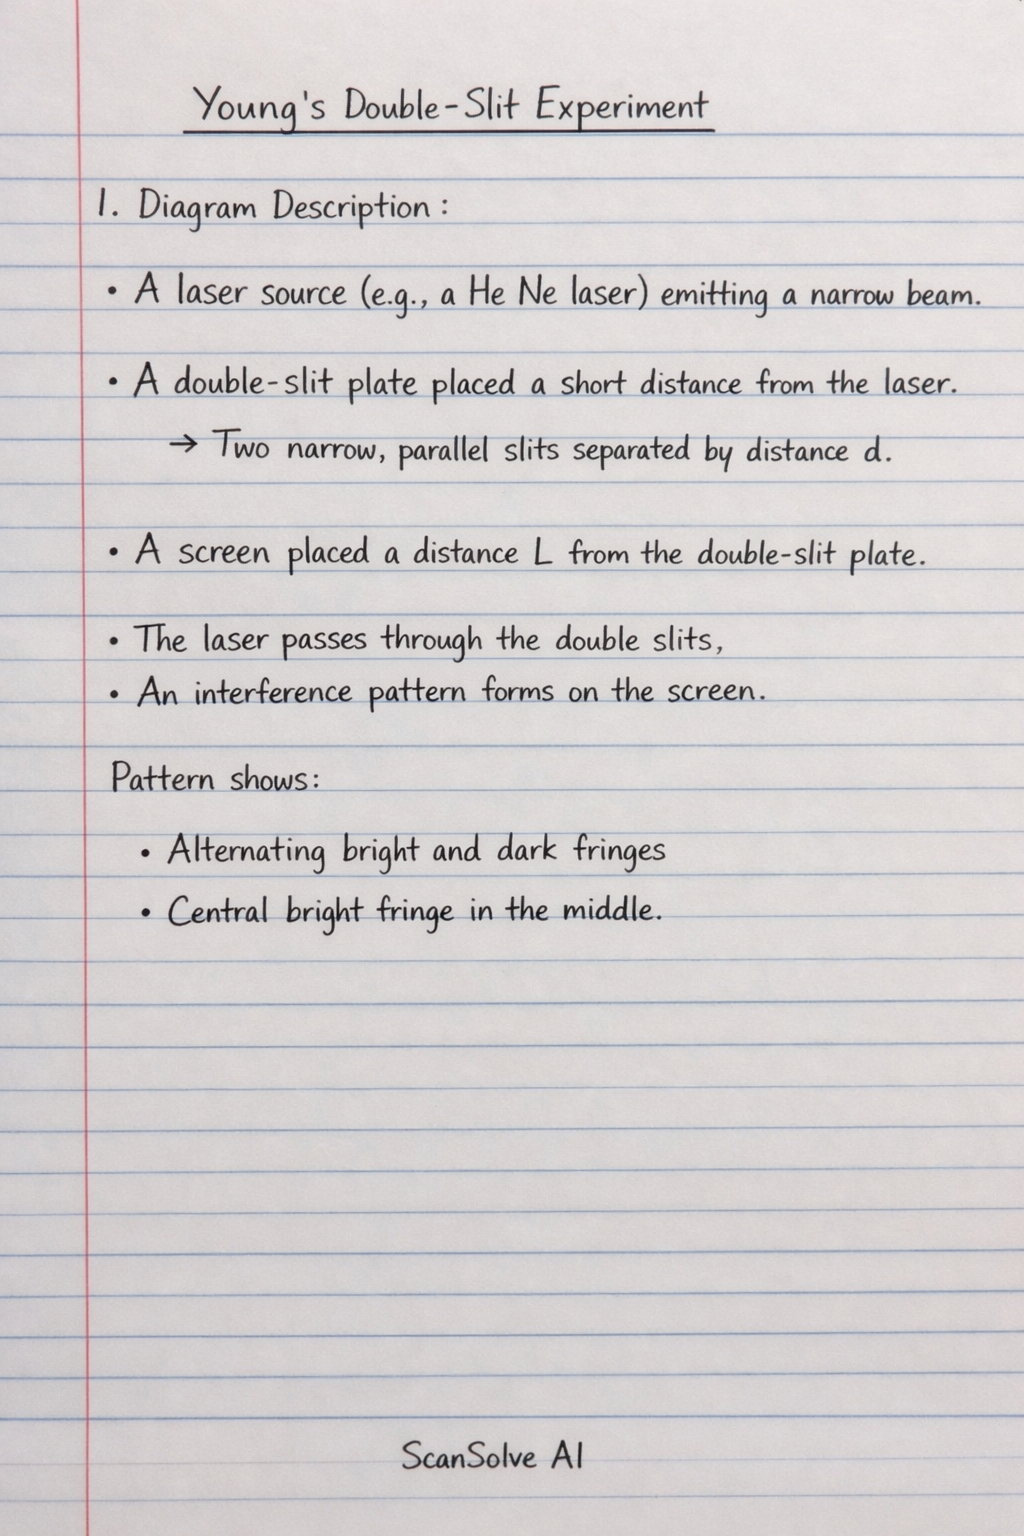 Young's Double-Slit Experiment
1. Diagram Description:
• A laser source (e.g., a He Ne laser) emitting a narrow beam.
• A double-slit plate placed a short distance from the laser.
→ Two narrow, parallel slits separated by distance d.
• A screen placed a distance L from the double-slit plate.
• The laser passes through the double slits,
• An interference pattern forms on the screen.
Pattern shows:
• Alternating bright and dark fringes
• Central bright fringe in the middle.
ScanSolve AI